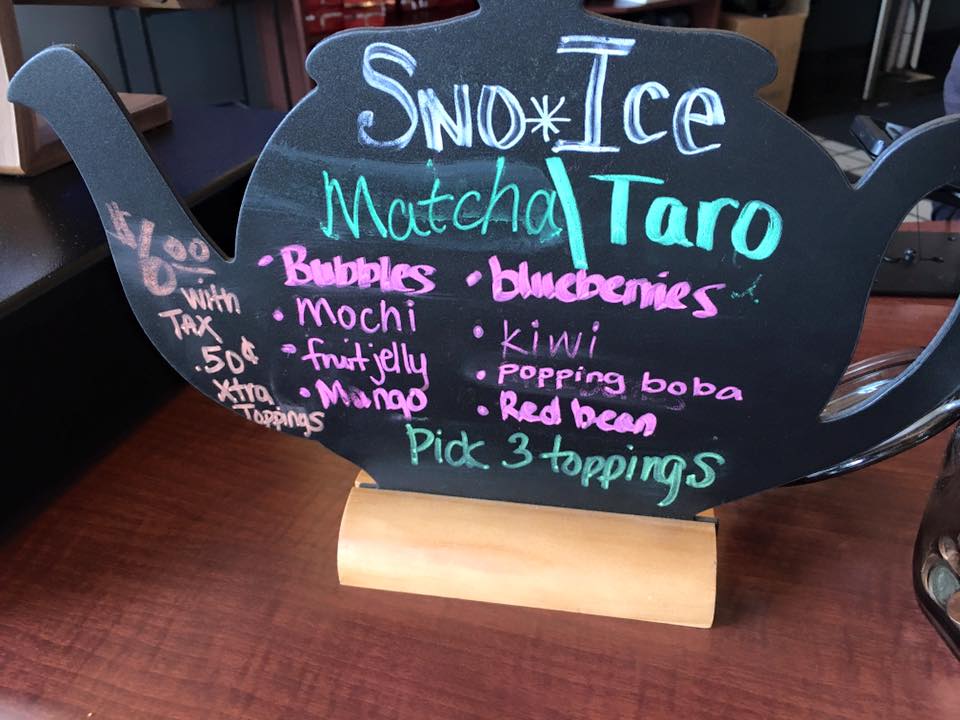 Sno*Ice
Matcha\Taro
$6.00
with
TAX
.50¢
Xtra
Toppings
• Bubbles
• Mochi
• fruit jelly
• Mango
• blueberries
• kiwi
• popping boba
• Red bean
Pick 3 toppings